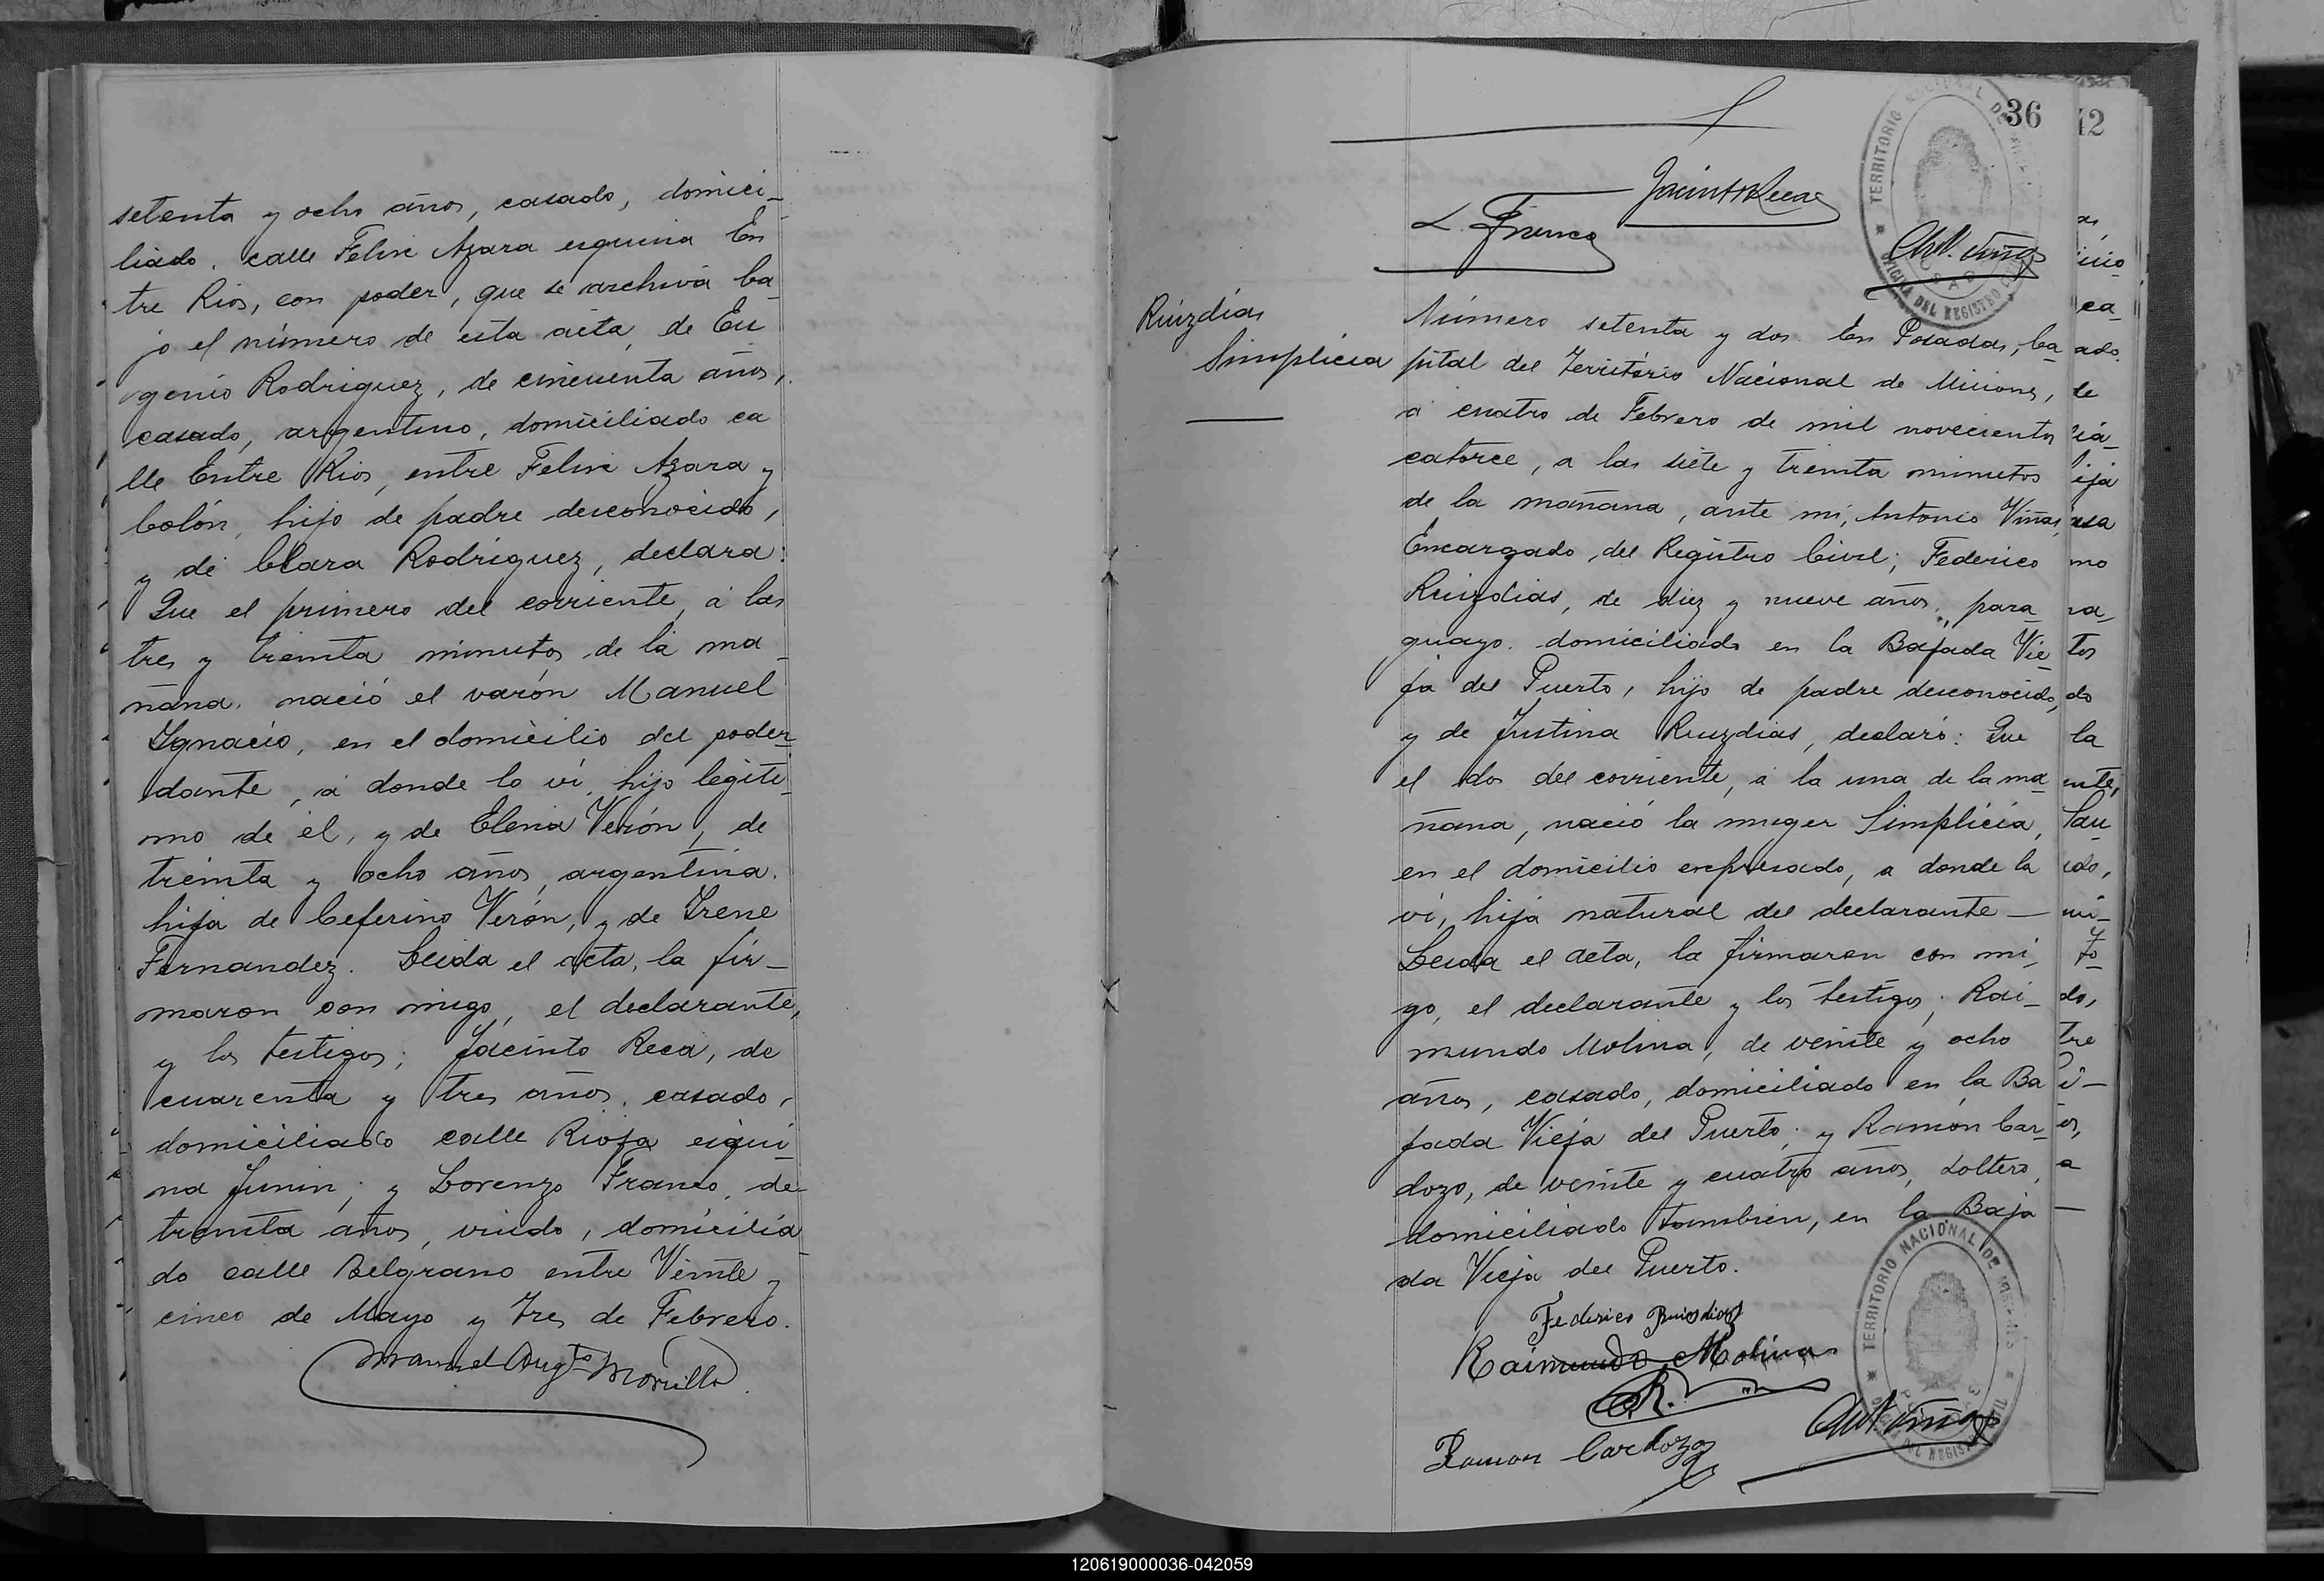 setenta y ocho años, casado, domici-
liado. calle Felix Azara esquina En
tre Rios, con poder, que se archiva ba-
jo el número de esta acta, de Eu
genio Rodriguez, de cincuenta años,
casado, argentino, domiciliado ca
lle Entre Rios, entre Felix Azara y
Colón, hijo de padre desconocido,
y de Clara Rodriguez, declara:
Que el primero del corriente, á las
tres y treinta minutos de la ma-
ñana, nació el varón Manuel
Ygnacio, en el domicilio del poder-
dante, á donde lo ví, hijo legíti-
mo de él, y de Elena Verón, de
treinta y ocho años, argentina.
hija de Ceferino Verón, y de Irene
Fernandez. Leida el acta, la fir-
maron con migo, el declarante,
y los testigos; Jacinto Reca, de
cuarenta y tres años, casado,
domiciliado calle Rioja esqui-
na Junin; y Lorenzo Franco, de
treinta años, viudo, domicilia-
do calle Belgrano entre Veinte y
cinco de Mayo y Tres de Febrero.
Manuel Augto Morillo
36
12
Jacinto Reca
L. Franco
Ant. Viñas
Ruizdias
Simplicia
Número setenta y dos. En Posadas, Ca
pital del Território Nacional de Misiones,
á cuatro de Febrero de mil novecientos
catorce, a las siete y treinta minutos
de la mañana, ante mi, Antonio Viñas,
Encargado del Registro Civil; Federico
Ruizdias, de diez y nueve años, para-
guayo. domiciliado en la Bajada Vie-
ja del Puerto, hijo de padre desconocido,
y de Justina Ruizdias, declaró: Que
el dos del corriente, á la una de la ma-
ñana, nació la muger Simplicia,
en el domicilio expresado, a donde la
ví, hija natural del declarante —
Leida el acta, la firmaron con mi-
go, el declarante y los testigos; Rai-
mundo Molina, de veinte y ocho
años, casado, domiciliado en la Ba
jada Vieja del Puerto; y Ramón Car-
dozo, de veinte y cuatro años, soltero,
domiciliado tambien, en la Baja
da Vieja del Puerto.
Federico Ruisdiaz
Raimundo Molina
Ramon Cardozo
Ant. Viñas
TERRITORIO NACIONAL DE MISIONES
OFICINA DEL REGISTRO CIVIL
120619000036-042059